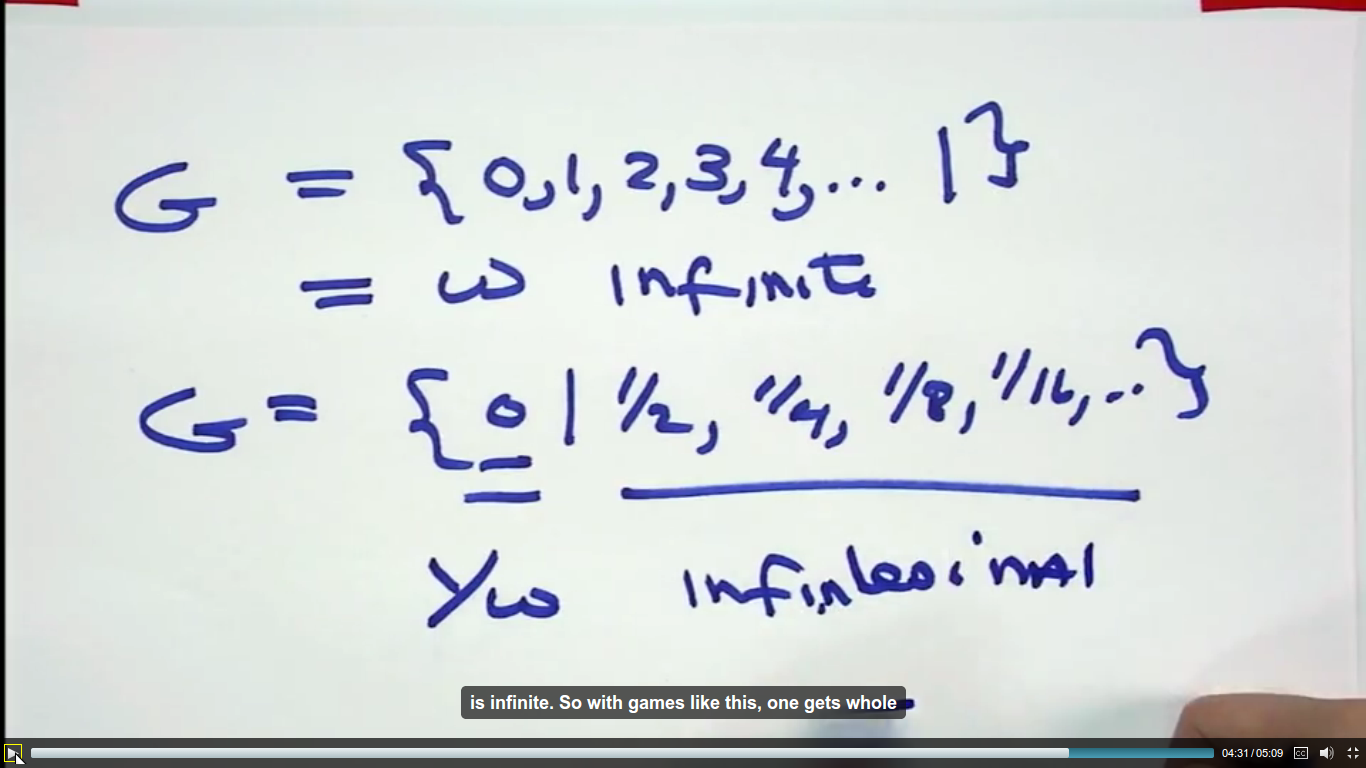 G = {0, 1, 2, 3, 4, ... | }
= ω infinite
G = {0 | 1/2, 1/4, 1/8, 1/16, ...}
1/ω infintesimal
is infinite. So with games like this, one gets whole
04:31/05:09
CC